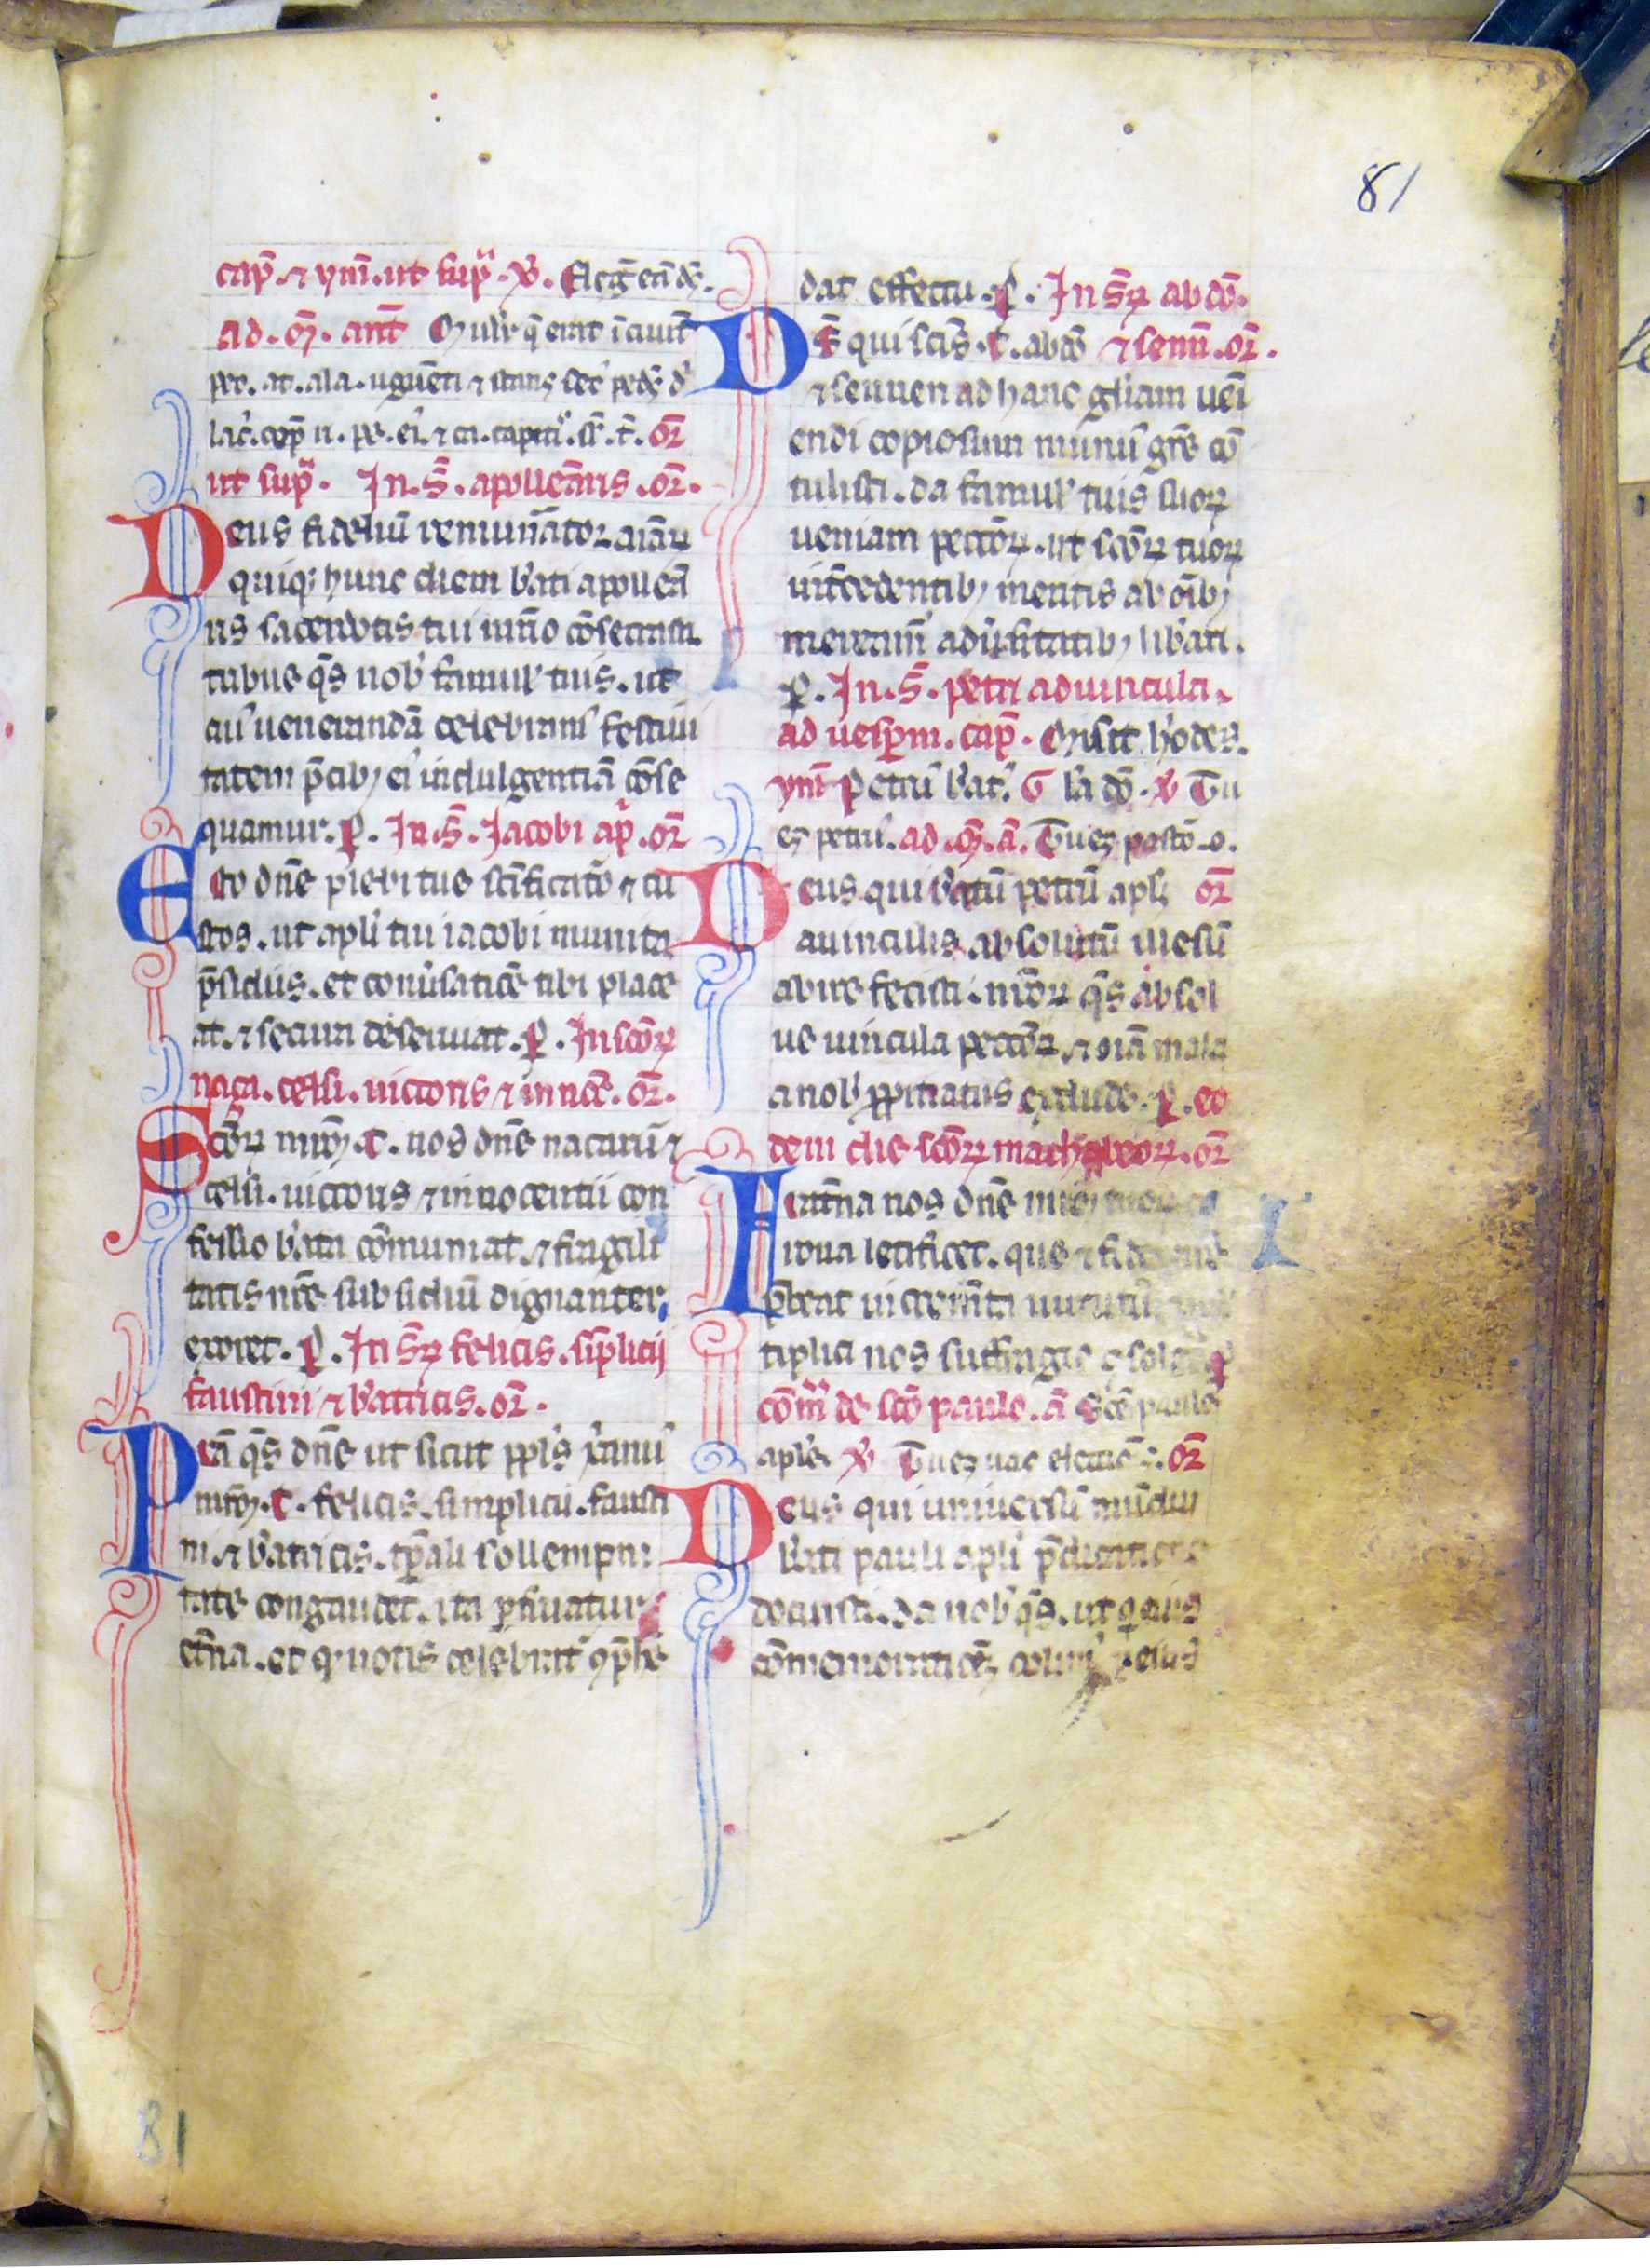 81
cap̄. ⁊ ym̄. ut sup̄ᵃ. ℣. Eleḡ eā dˢ.
ad. m̄. ant̄ Mulˀr q̄ erat ī ciuit̄
lac̄. cep̄
ut sup̄ᵃ. In. S̄. apollenaris. or̄.
Deus fideliū remun̄ator aīaꝝ
quiqꝫ hunc diem b̄ati apollen̄
ris sacerdotis tui mr̄io cōsecrasti
tribue q̄s nob̄ famul̄ tuis. ut
cuiˀ uenerandā celebramˀ festiui
tatem p̄cibꝫ eiˀ indulgentiā cōse
quamur. ꝑ. In. S̄. Jacobi ap̄. or̄
Esto dn̄e plebi tue sc̄ificator̄ ⁊ cu
stos. ut apl̄i tui iacobi munita
p̄sidiis. et conūsatiōe tibi place
at. ⁊ secura deseruiat. ꝑ. In sc̄oꝝ
naȝa. celsi. uictoris ⁊ innoc̄. or̄.
Sc̄oꝝ mr̄ꝫ. t. nos dn̄e naȝarii ⁊
celsi. uictoris ⁊ innocentii con
fessio b̄ata cōmuniat. ⁊ fragili
tatis nr̄e subsidiū dignanter
exoret. ꝑ. In S̄ꝝ felicis. sīplicij
faustini ⁊ b̄atricis. or̄.
Prā q̄s dn̄e ut sicut pp̄ls xp̄ianuˀ
mr̄ꝫ. t. felicis. simplicii. fausti
ni. ⁊ b̄atricis. tp̄ali sollempni
tate congaudet. ita ꝑfruatur
et̄na. et quotis celebrat ꝯp̄he
dat effectu. ꝑ. In S̄ꝝ abdō.
Ds̄ qui sc̄is. t. abdō ⁊ senn̄. or̄.
⁊ sennen ad hanc gl̄iam uēi
endi copiosum munusˀ gr̄e cō
tulisti. da famulˀ tuis suoꝝ
ueniam pecc̄oꝝ. ut sc̄oꝝ tuoꝝ
int̄cedentibꝫ meritis ab oībꝫ
mereamˀ adūsitatibꝫ lib̄ari.
ꝑ. In. S̄. petri aduincula.
ad uesꝑm. cap̄. Misit hˀodes.
ym̄ Petrū b̄at. G la dō. ℣ Tu
eꝫ petruˀ. ad. m̄. ā. Tu eꝫ pastō. o.
Deus qui b̄atū petrū apl̄ꝫ or̄
a uinculis absolutū illesū
abire fecisti. nr̄oꝝ q̄s absol
ue uincula pecc̄oꝝ. ⁊ oīa mala
a nob̄ ꝓpitiatus exclude. ꝑ. eo
dem die sc̄oꝝ machabeoꝝ. or̄
Fraterna nos dn̄e mr̄ꝫ tuoꝝ co
rona letificet. que ⁊ fidei nr̄e
p̄beat incrementa uirtutū. ⁊ mul
tiplici nos suffragio ꝯsolet. ꝑ
cōm̄ de sc̄o paulo. ā Sc̄e paule
aple. ℣ Tu eꝫ uas electiōiˢ. or̄
Deus qui uniuersū mūdum
b̄ati pauli apl̄i p̄dicatione
docuisti. da nob̄ q̄s. ut qui eiˀ
cōmemoratiōeꝫ colimˀ
81